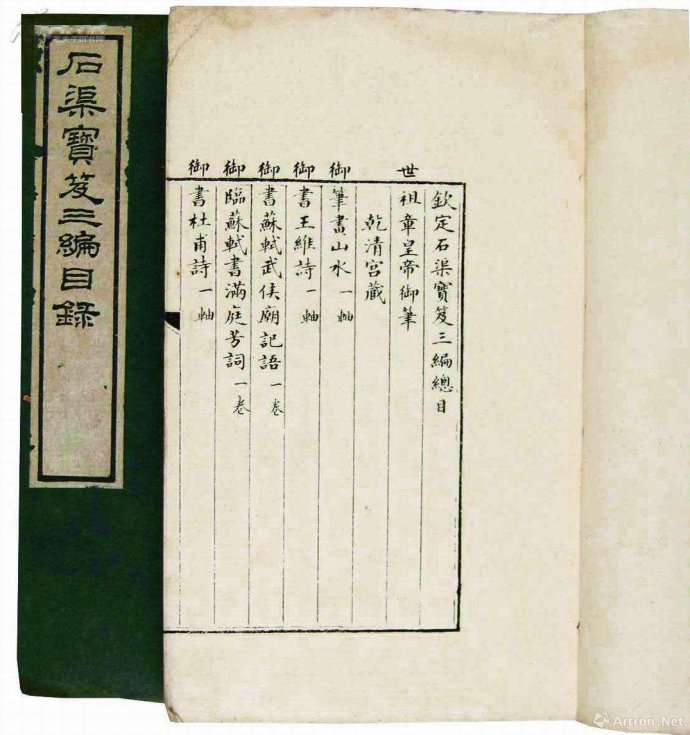 石渠寶笈三編目錄
欽定石渠寶笈三編總目
世祖章皇帝御筆
乾清宮藏
御筆畫山水一軸
御書王維詩一軸
御書蘇軾武侯廟記語一卷
御臨蘇軾書滿庭芳詞一卷
御書杜甫詩一軸
Artron.Net